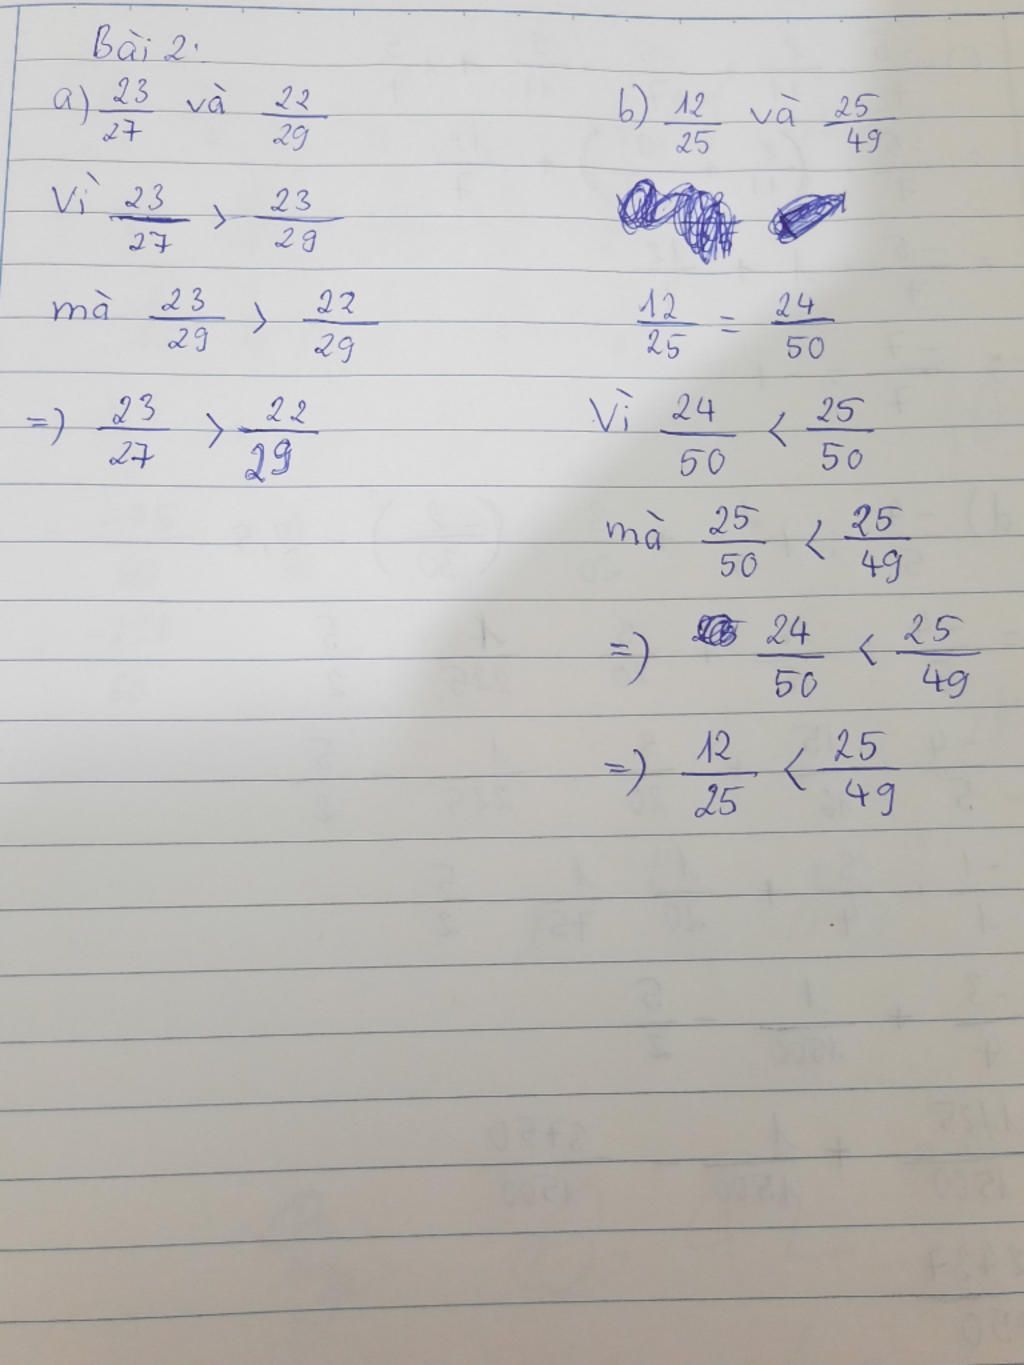 Bài 2:
a) 23/27 và 22/29
Vì 23/27 > 23/29
mà 23/29 > 22/29
=) 23/27 > 22/29
b) 12/25 và 25/49
12/25 = 24/50
Vì 24/50 < 25/50
mà 25/50 < 25/49
=) 24/50 < 25/49
=) 12/25 < 25/49